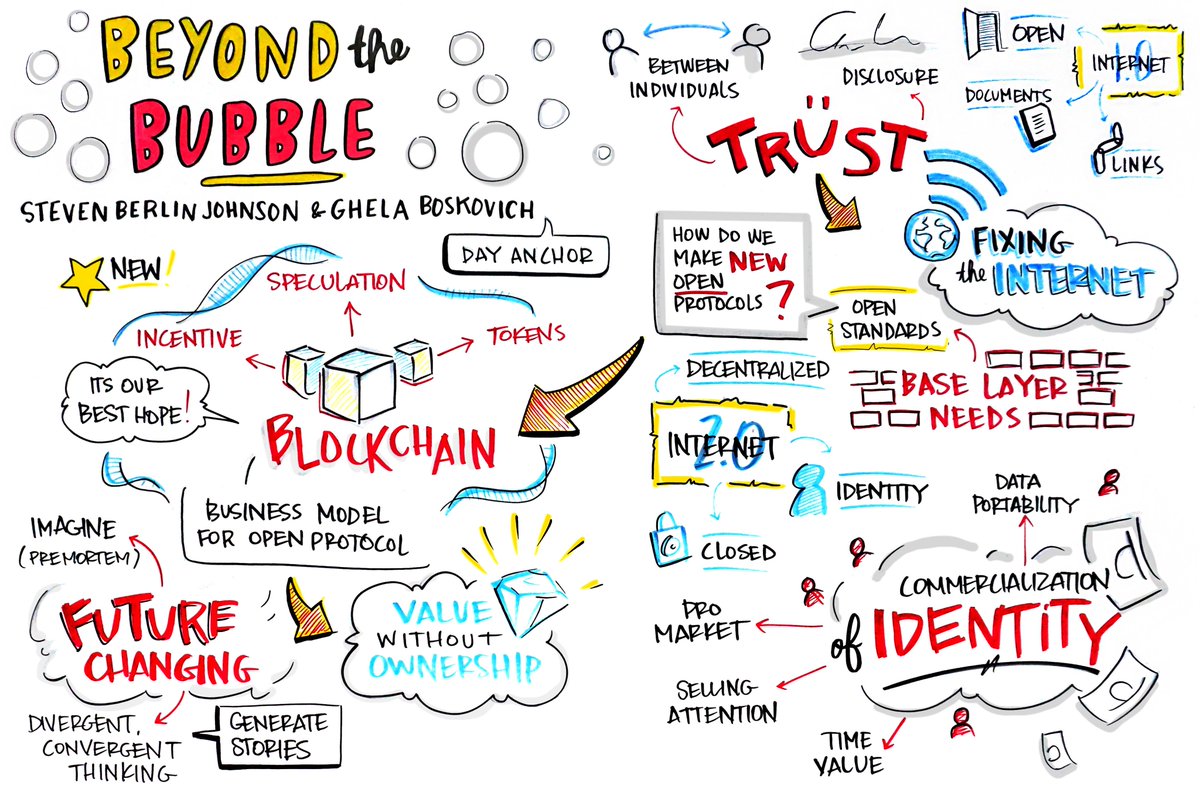 BEYOND the
BUBBLE
STEVEN BERLIN JOHNSON & GHELA BOSKOVICH
DAY ANCHOR
NEW!
SPECULATION
INCENTIVE
TOKENS
ITS OUR
BEST HOPE!
BLOCKCHAIN
BUSINESS MODEL
FOR OPEN PROTOCOL
IMAGINE
(PREMORTEM)
FUTURE
CHANGING
DIVERGENT,
CONVERGENT
THINKING
GENERATE
STORIES
VALUE
WITHOUT
OWNERSHIP
BETWEEN
INDIVIDUALS
DISCLOSURE
TRÜST
OPEN
INTERNET
1.0
DOCUMENTS
LINKS
FIXING
the INTERNET
HOW DO WE
MAKE NEW
OPEN
PROTOCOLS?
OPEN
STANDARDS
BASE LAYER
NEEDS
DECENTRALIZED
INTERNET
2.0
IDENTITY
CLOSED
DATA
PORTABILITY
COMMERCIALIZATION
of IDENTITY
PRO
MARKET
SELLING
ATTENTION
TIME
VALUE